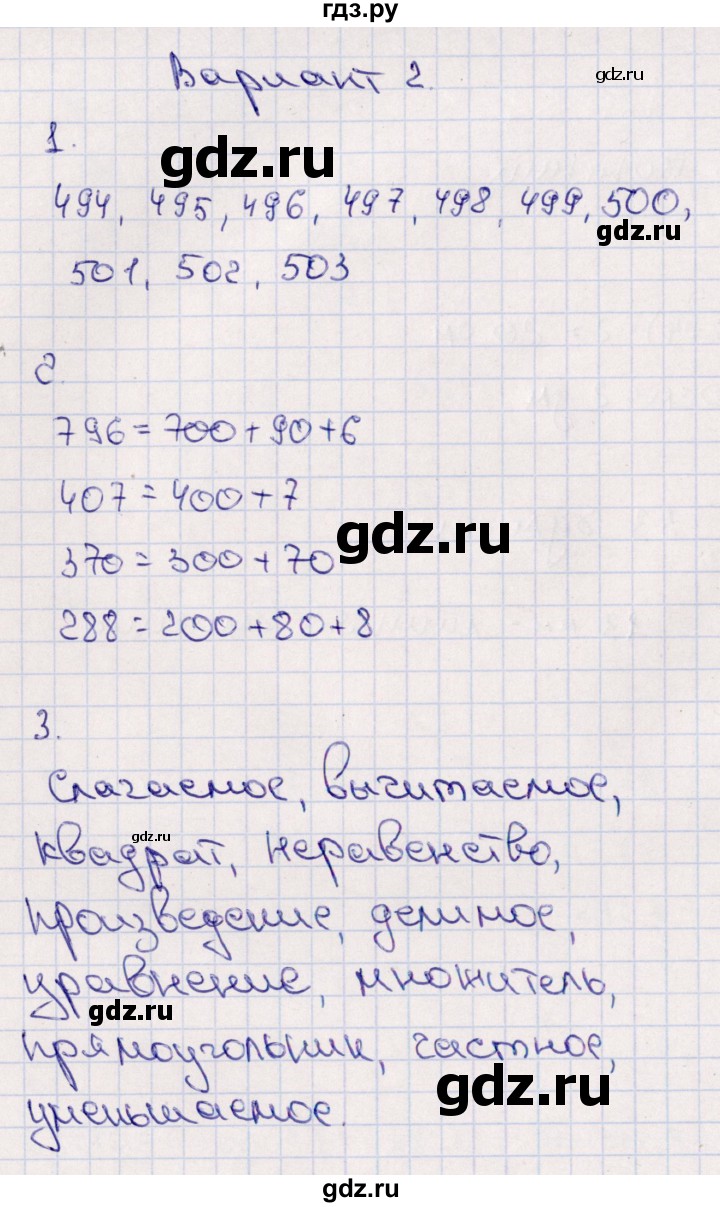 гдз.ру
Вариант 2.
gdz.ru
1.
gdz.ru
494, 495, 496, 497, 498, 499, 500,
gdz.ru
501, 502, 503
2.
796 = 700 + 90 + 6
407 = 400 + 7
gdz.ru
370 = 300 + 70
288 = 200 + 80 + 8
3.
Слагаемое, вычитаемое,
gdz.ru
квадрат, неравенство,
произведение, делимое,
уравнение, множитель,
gdz.ru
прямоугольник, частное,
gdz.ru
уменьшаемое.
gdz.ru